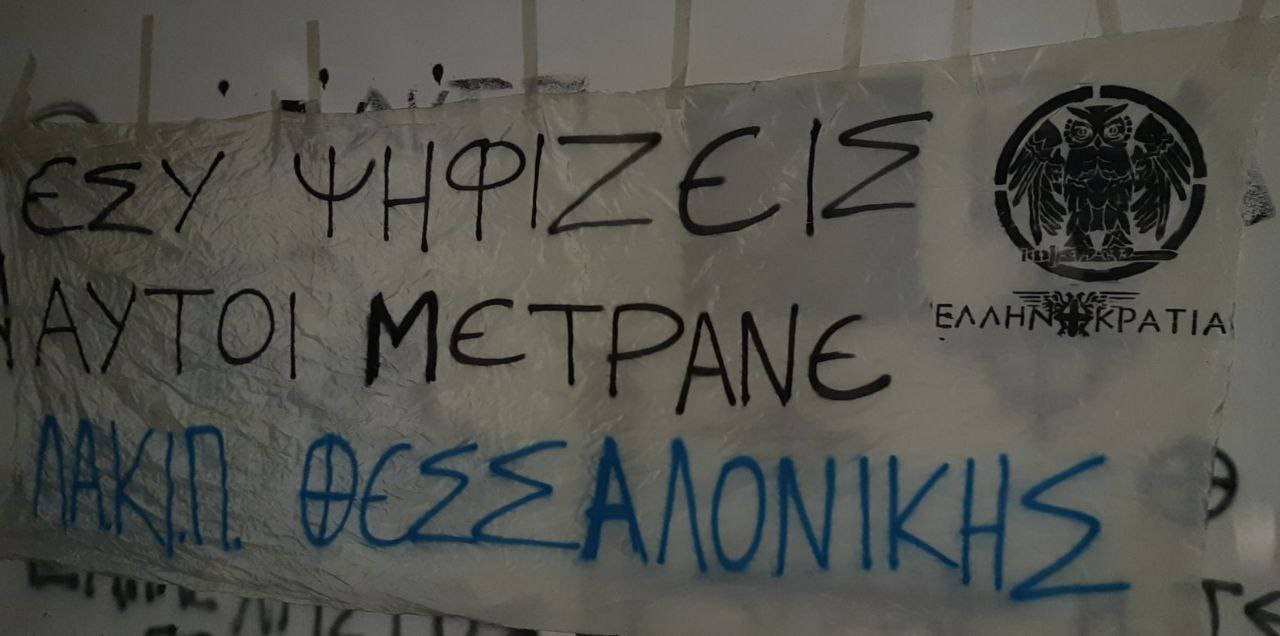 ΕΣΥ ΨΗΦΙΖΕΙΣ
ΑΥΤΟΙ ΜΕΤΡΑΝΕ
ΛΑΚΙ.Π. ΘΕΣΣΑΛΟΝΙΚΗΣ
ΕΛΛΗΝΟΚΡΑΤΙΑ